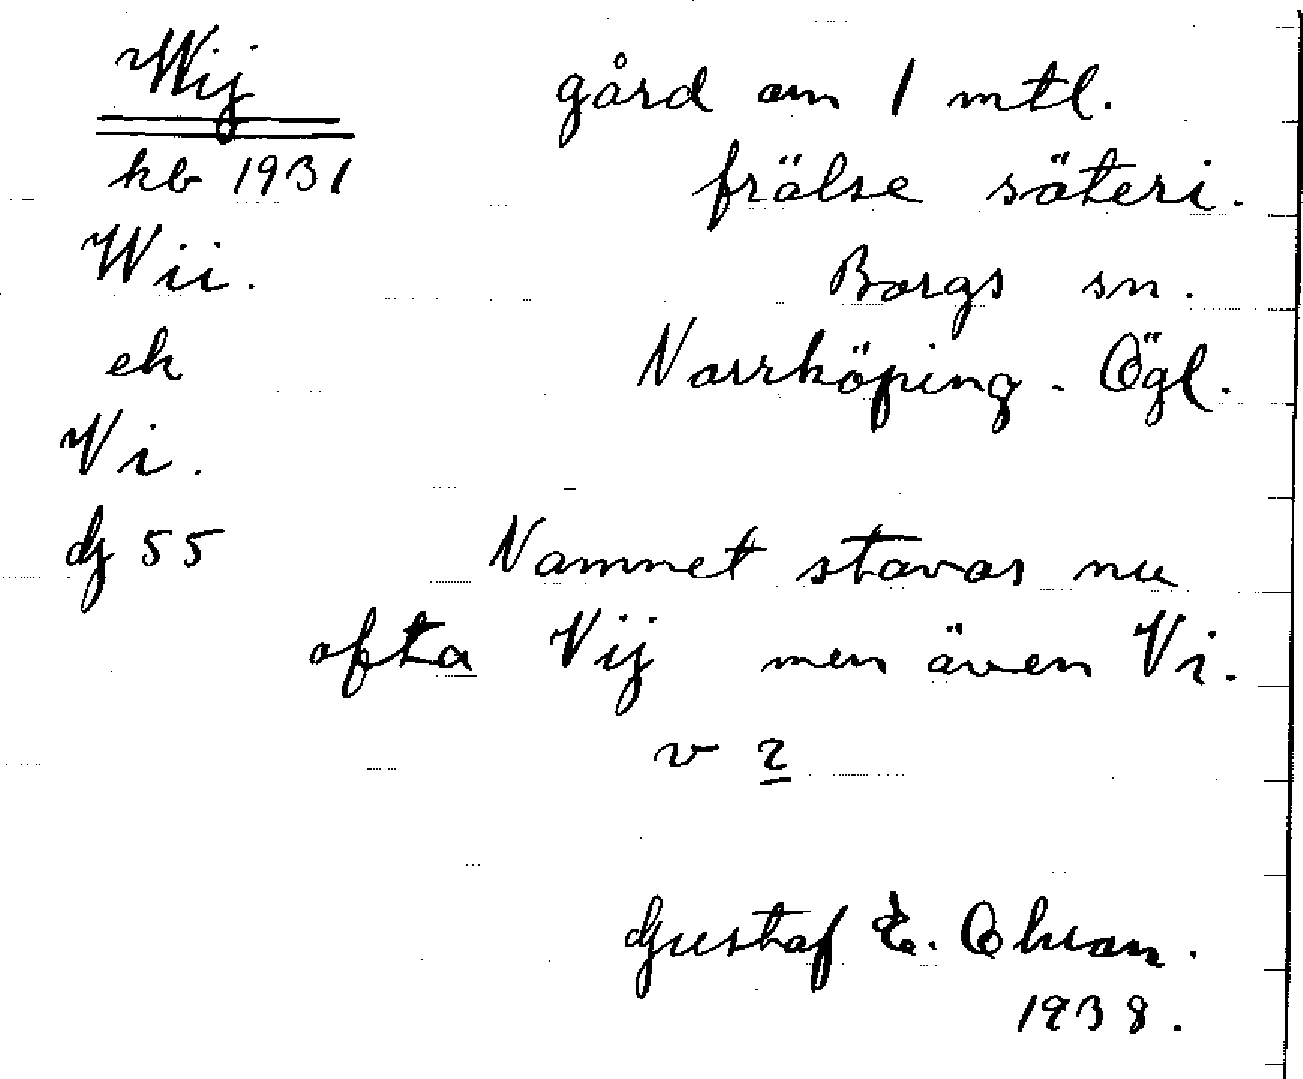 Wij gård om 1 mtl.
kb 1931 frälse säteri.
Wii. Borgs sn.
ek Norrköping. Ögl.
Vi.
dj 55 Namnet stavas nu
ofta Vij men även Vi.
v 2
Gustaf E.
1938.